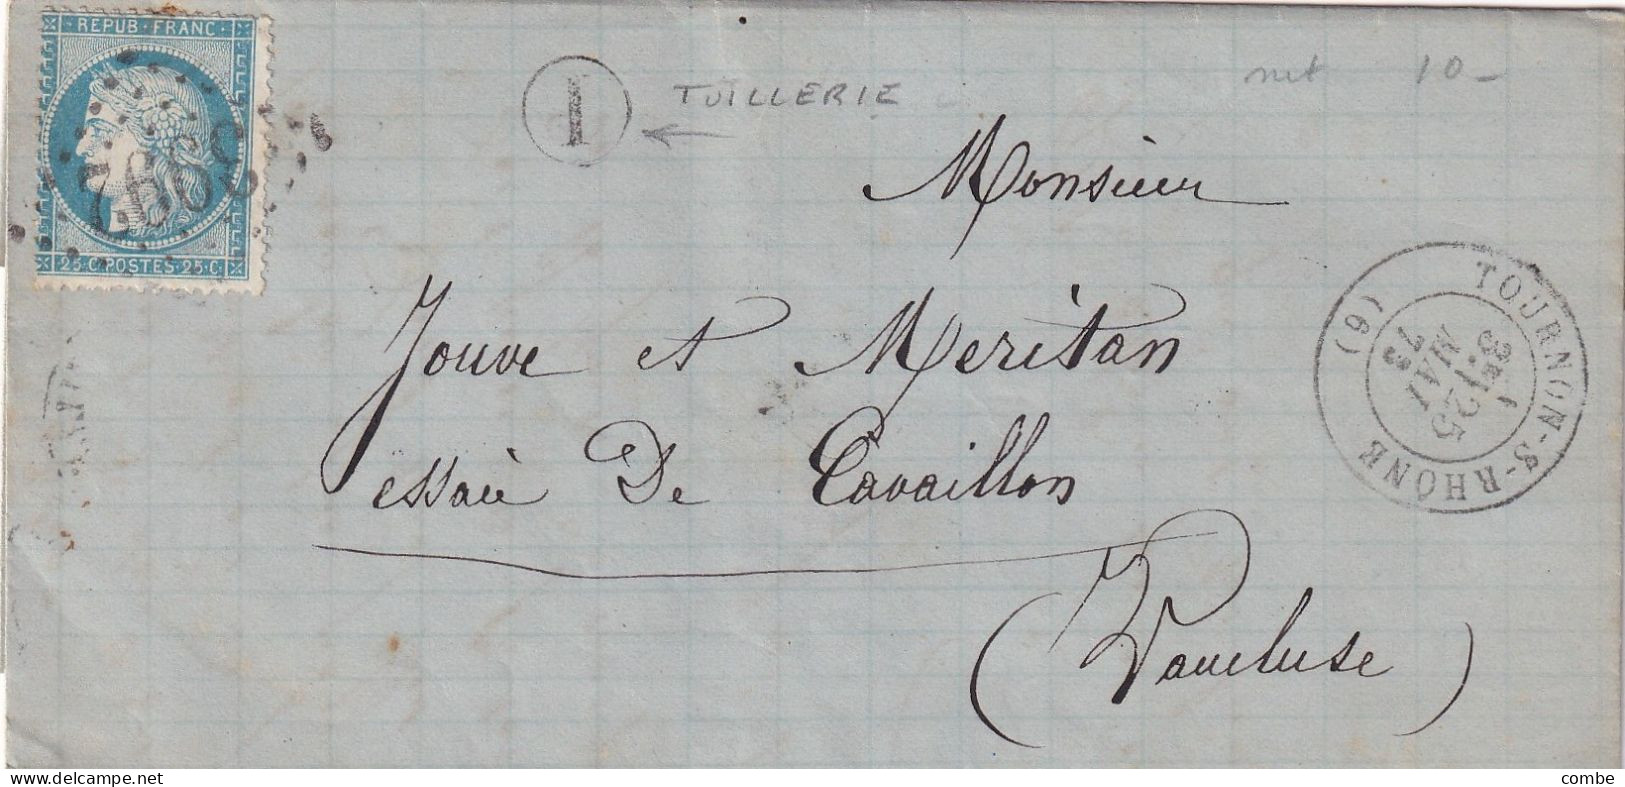 REPUB·FRANC·
3992
25·C·POSTES·25·C·
I
TUILLERIE
net 10-
Monsieur
Jouve et Meritan
essaie De Cavaillon
(Vaucluse)
TOURNON-S-RHONE
(9)
3E
25
MAI
73
combe